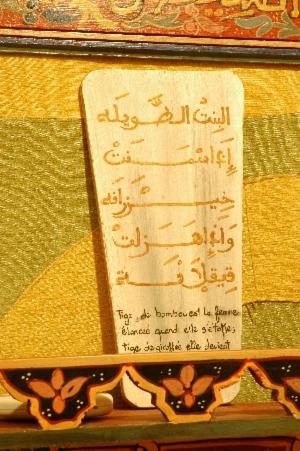 البنت الطويله
إذا سمنت
خيزرانه
وإذا هزلت
Tige de bambou est la femme
élancée quand elle s'étoffe;
tige de giroflée elle devient